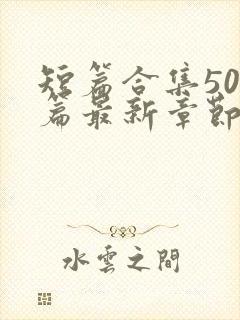 短篇合集50
篇最新章節
水雲之間